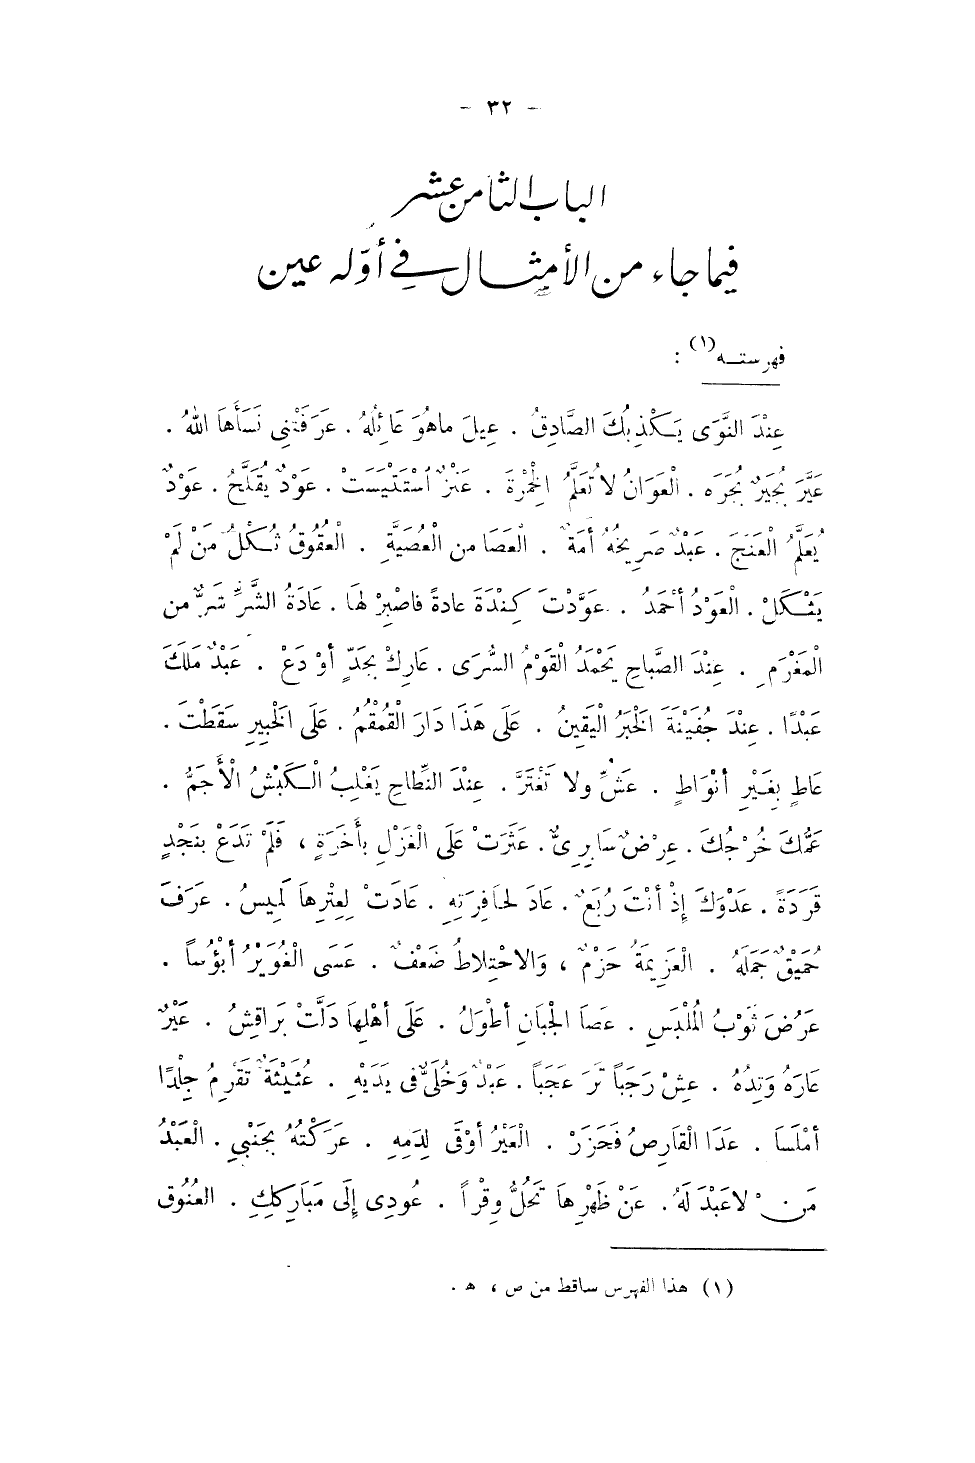 - ٣٢ -
الباب الثامن عشر
فيما جاء من الأمثال في أوّله عين
فهرسته (١) :
عِنْدَ النَّوَى يَكْذِبُكَ الصَّادِقُ . عِيلَ ماهُوَ عَائِلُهُ . عَرَفَتْنِى نَسَأَهَا اللهُ .
عَيَّرَ بُجَيرٌ بُجَرَه . الْعَوَانُ لا تُعَلَّمُ الخِمْرَةَ . عَنْزٌ اسْتَتْيَسَتْ . عَوْدٌ يُقَلَّحُ . عَوْدٌ
يُعَلَّمُ الْعَنَجَ . عَبْدٌ صَرِيخُهُ أَمَةٌ . الْعَصَا من الْعُصَيَّةِ . الْعُقُوقُ ثُكْلُ مَنْ لَمْ
يَثْكَلْ . الْعَوْدُ أحْمَدُ . عَوَّدْتَ كِنْدَةَ عادةً فاصْبِرْ لهَا . عَادَةُ الشَّرِّ شَرٌّ من
الْمَغْرَمِ . عِنْدَ الصَّباحِ يَحْمَدُ الْقَوْمُ السُّرَى . عَارِكْ بِجَدٍّ أوْ دَعْ . عَبْدٌ مَلَكَ
عَبْدًا . عِنْدَ جُفَيْنَةَ الخَبَرُ الْيَقِينُ . عَلَى هَذَا دَارَ الْقُمْقُمُ . عَلَى الخْبِيرِ سَقَطْتَ .
عَاطٍ بِغَيْرِ أنْوَاطٍ . عَشِّ ولا تَغْتَرَّ . عِنْدَ النِّطاحِ يَغْلِبُ الْكَبْشُ الْأَجَمُّ .
عَمُّكَ خُرْجُكَ . عِرْضٌ سَابِرِىٌّ . عَثَرَتْ عَلَى الْغَزْلِ بِأَخَرَةٍ ، فَلَمْ تَدَعْ بِنَجْدٍ
قَرَدَةً . عَدْوَكَ إذْ أنْتَ رُبَعٌ . عَادَ لحافِرَتِهِ . عَادَتْ لِعِتْرِهاَ لَمِيسُ . عَرَفَ
حُمَيْقٌ جَمَلَهُ . الْعَزِيمَةُ حَزْمٌ ، وَالاحْتِلاطُ ضَعْفٌ . عَسَى الْغُوَيْرُ أبْؤُساً .
عَرُضَ ثَوْبُ المُلْبَسِ . عَصَا الجَبَانِ أطْوَلُ . عَلَى أهْلِهاَ دَلَّتْ بَرَاقِشُ . عَيْرٌ
عَارَهُ وَتِدُهُ . عِشْ رَجَباً تَرَ عَجَباً . عَبْدٌ وَخُلِّىَ فى يَدَيْهِ . عُثَيْثَةٌ تَقْرِمُ جِلْدًا
أمْلَسَا . عَدَا الْقَارِصُ فَحَزَرْ . الْعَيْرُ أوْقَى لِدَمِهِ . عَرَكْتُهُ بِجَنْبِي . الْعَبْدُ
مَنْ لاعَبْدَ لَهُ . عَنْ ظَهْرِهاَ تَحُلُّ وِقْراً . عُودِى إلَى مَبَارِكِكِ . العُنُوق
(١) هذا الفهرس ساقط من ص ، ه .